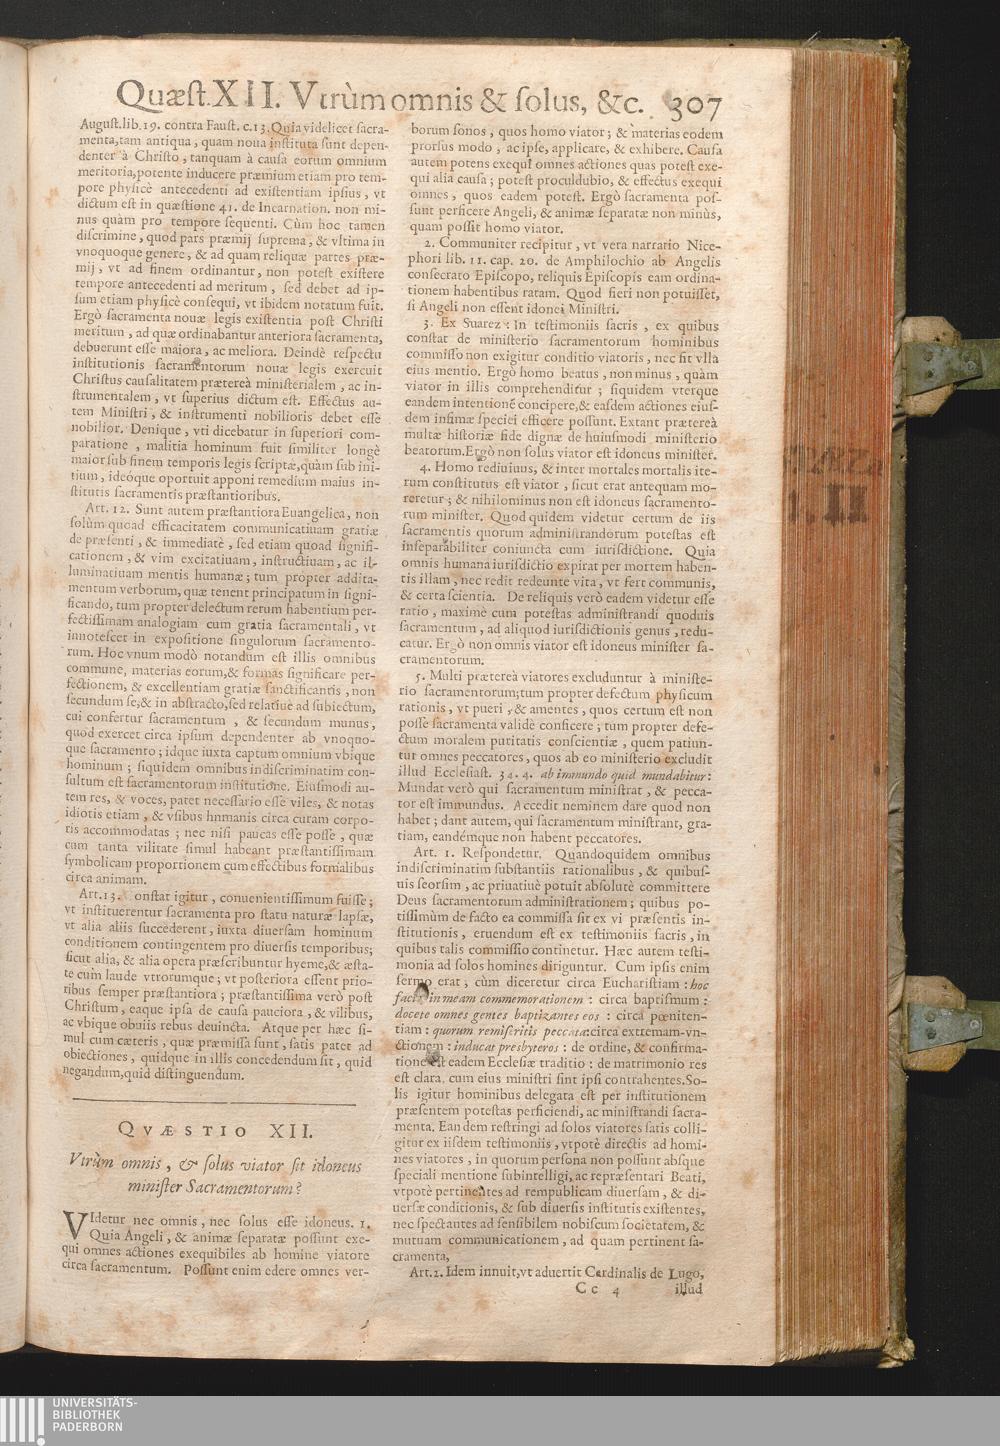 Quæſt. XII. Vtrùm omnis & ſolus, &c. 307
Auguſt. lib. 19. contra Fauſt. c. 13. Quia videlicet ſacra-
menta, tam antiqua, quam noua inſtituta ſunt depen-
denter à Chriſto, tanquam à cauſa eorum omnium
meritoria, potente inducere præmium etiam pro tem-
pore phyſicè antecedenti ad exiſtentiam ipſius, vt
dictum eſt in quæſtione 41. de Incarnation. non mi-
nus quàm pro tempore ſequenti. Cùm hoc tamen
diſcrimine, quod pars præmij ſuprema, & vltima in
vnoquoque genere, & ad quam reliquæ partes præ-
mij, vt ad finem ordinantur, non poteſt exiſtere
tempore antecedenti ad meritum, ſed debet ad ip-
ſum etiam phyſicè conſequi, vt ibidem notatum fuit.
Ergò ſacramenta nouæ legis exiſtentia poſt Chriſti
meritum, ad quæ ordinabantur anteriora ſacramenta,
debuerunt eſſe maiora, ac meliora. Deindè reſpectu
inſtitutionis ſacramentorum nouæ legis exercuit
Chriſtus cauſalitatem prætereà miniſterialem, ac in-
ſtrumentalem, vt ſuperius dictum eſt. Effectus au-
tem Miniſtri, & inſtrumenti nobilioris debet eſſe
nobilior. Denique, vti dicebatur in ſuperiori com-
paratione, malitia hominum fuit ſimiliter longè
maior ſub finem temporis legis ſcriptæ, quàm ſub ini-
tium, ideóque oportuit apponi remedium maius in-
ſtitutis ſacramentis præſtantioribus.
Art. 12. Sunt autem præſtantiora Euangelica, non
ſolùm quoad efficacitatem communicatiuam gratiæ
de præſenti, & immediatè, ſed etiam quoad ſignifi-
cationem, & vim excitatiuam, inſtructiuam, ac il-
luminatiuam mentis humanæ; tum propter addita-
mentum verborum, quæ tenent principatum in ſigni-
ficando, tum propter delectum rerum habentium per-
fectiſſimam analogiam cum gratia ſacramentali, vt
innoteſcet in expoſitione ſingulorum ſacramento-
rum. Hoc vnum modò notandum eſt illis omnibus
commune, materias eorum, & formas ſignificare per-
fectionem, & excellentiam gratiæ ſanctificantis, non
ſecundum ſe, & in abſtracto, ſed relatiuè ad ſubiectum,
cui confertur ſacramentum, & ſecundum munus,
quod exercet circa ipſum dependenter ab vnoquo-
que ſacramento; idque iuxta captum omnium vbique
hominum; ſiquidem omnibus indiſcriminatim con-
ſultum eſt ſacramentorum inſtitutione. Eiuſmodi au-
tem res, & voces, patet neceſſario eſſe viles, & notas
idiotis etiam, & vſibus hnmanis circa curam corpo-
ris accommodatas; nec niſi paucas eſſe poſſe, quæ
cum tanta vilitate ſimul habeant præſtantiſſimam
ſymbolicam proportionem cum effectibus formalibus
circa animam.
Art. 13. onſtat igitur, conuenientiſſimum fuiſſe;
vt inſtituerentur ſacramenta pro ſtatu naturæ lapſæ,
vt alia aliis ſuccederent, iuxta diuerſam hominum
conditionem contingentem pro diuerſis temporibus;
ſicut alia, & alia opera præſcribuntur hyeme, & æſta-
te cum laude vtrorumque; vt poſteriora eſſent prio-
ribus ſemper præſtantiora; præſtantiſſima verò poſt
Chriſtum, eaque ipſa de cauſa pauciora, & vilibus,
ac vbique obuiis rebus deuincta. Atque per hæc ſi-
mul cum cæteris, quæ præmiſſa ſunt, ſatis patet ad
obiectiones, quidque in illis concedendum ſit, quid
negandum, quid diſtinguendum.
QVÆSTIO XII.
Vtrùm omnis, & ſolus viator ſit idoneus
miniſter Sacramentorum?
VIdetur nec omnis, nec ſolus eſſe idoneus. 1.
Quia Angeli, & animæ ſeparatæ poſſunt exe-
qui omnes actiones exequibiles ab homine viatore
circa ſacramentum. Poſſunt enim edere omnes ver-
borum ſonos, quos homo viator; & materias eodem
prorſus modo, ac ipſe, applicare, & exhibere. Cauſa
autem potens exequi omnes actiones quas poteſt exe-
qui alia cauſa; poteſt proculdubio, & effectus exequi
omnes, quos eadem poteſt. Ergò ſacramenta poſ-
ſunt perficere Angeli, & animæ ſeparatæ non minùs,
quam poſſit homo viator.
2. Communiter recipitur, vt vera narratio Nice-
phori lib. 11. cap. 20. de Amphilochio ab Angelis
conſecrato Epiſcopo, reliquis Epiſcopis eam ordina-
tionem habentibus ratam. Quod fieri non potuiſſet,
ſi Angeli non eſſent idonei Miniſtri.
3. Ex Suarez: In teſtimoniis ſacris, ex quibus
conſtat de miniſterio ſacramentorum hominibus
commiſſo non exigitur conditio viatoris, nec fit vlla
eius mentio. Ergò homo beatus, non minus, quàm
viator in illis comprehenditur; ſiquidem vterque
eandem intentionē concipere, & eaſdem actiones eiuſ-
dem infimæ ſpeciei efficere poſſunt. Extant prætereà
multæ hiſtoriæ fide dignæ de huiuſmodi miniſterio
beatorum. Ergò non ſolus viator eſt idoneus miniſter.
4. Homo rediuiuus, & inter mortales mortalis ite-
rum conſtitutus eſt viator, ſicut erat antequam mo-
reretur; & nihilominus non eſt idoneus ſacramento-
rum miniſter. Quod quidem videtur certum de iis
ſacramentis quorum adminiſtrandorum poteſtas eſt
inſeparabiliter coniuncta cum iuriſdictione. Quia
omnis humana iuriſdictio expirat per mortem haben-
tis illam, nec redit redeunte vita, vt fert communis,
& certa ſcientia. De reliquis verò eadem videtur eſſe
ratio, maximè cum poteſtas adminiſtrandi quoduis
ſacramentum, ad aliquod iuriſdictionis genus, redu-
catur. Ergò non omnis viator eſt idoneus miniſter ſa-
cramentorum.
5. Multi prætereà viatores excluduntur à miniſte-
rio ſacramentorum; tum propter defectum phyſicum
rationis, vt pueri, & amentes, quos certum eſt non
poſſe ſacramenta validè conficere; tum propter defe-
ctum moralem puritatis conſcientiæ, quem patiun-
tur omnes peccatores, quos ab eo miniſterio excludit
illud Eccleſiaſt. 34. 4. ab immundo quid mundabitur:
Mundat verò qui ſacramentum miniſtrat, & pecca-
tor eſt immundus. Accedit neminem dare quod non
habet; dant autem, qui ſacramentum miniſtrant, gra-
tiam, eandémque non habent peccatores.
Art. 1. Reſpondetur. Quandoquidem omnibus
indiſcriminatim ſubſtantiis rationalibus, & quibuſ-
uis ſeorſim, ac priuatiuè potuit abſolutè committere
Deus ſacramentorum adminiſtrationem; quibus po-
tiſſimùm de facto ea commiſſa ſit ex vi præſentis in-
ſtitutionis, eruendum eſt ex teſtimoniis ſacris, in
quibus talis commiſſio continetur. Hæc autem teſti-
monia ad ſolos homines diriguntur. Cum ipſis enim
ſermo erat, cùm diceretur circa Euchariſtiam: hoc
facite in meam commemorationem: circa baptiſmum:
docete omnes gentes baptizantes eos: circa pœniten-
tiam: quorum remiſeritis peccata: circa extremam-vn-
ctionem: inducat presbyteros: de ordine, & confirma-
tione eſt eadem Eccleſiæ traditio: de matrimonio res
eſt clara, cum eius miniſtri ſint ipſi contrahentes. So-
lis igitur hominibus delegata eſt per inſtitutionem
præſentem poteſtas perficiendi, ac miniſtrandi ſacra-
menta. Eandem reſtringi ad ſolos viatores ſatis colli-
gitur ex iiſdem teſtimoniis, vtpotè directis ad homi-
nes viatores, in quorum perſona non poſſunt abſque
ſpeciali mentione ſubintelligi, ac repræſentari Beati,
vtpotè pertinentes ad rempublicam diuerſam, & di-
uerſæ conditionis, & ſub diuerſis inſtitutis exiſtentes,
nec ſpectantes ad ſenſibilem nobiſcum ſocietatem, &
mutuam communicationem, ad quam pertinent ſa-
cramenta,
Art. 2. Idem innuit, vt aduertit Cardinalis de Lugo,
Cc 4 illud
UNIVERSITÄTS-
BIBLIOTHEK
PADERBORN